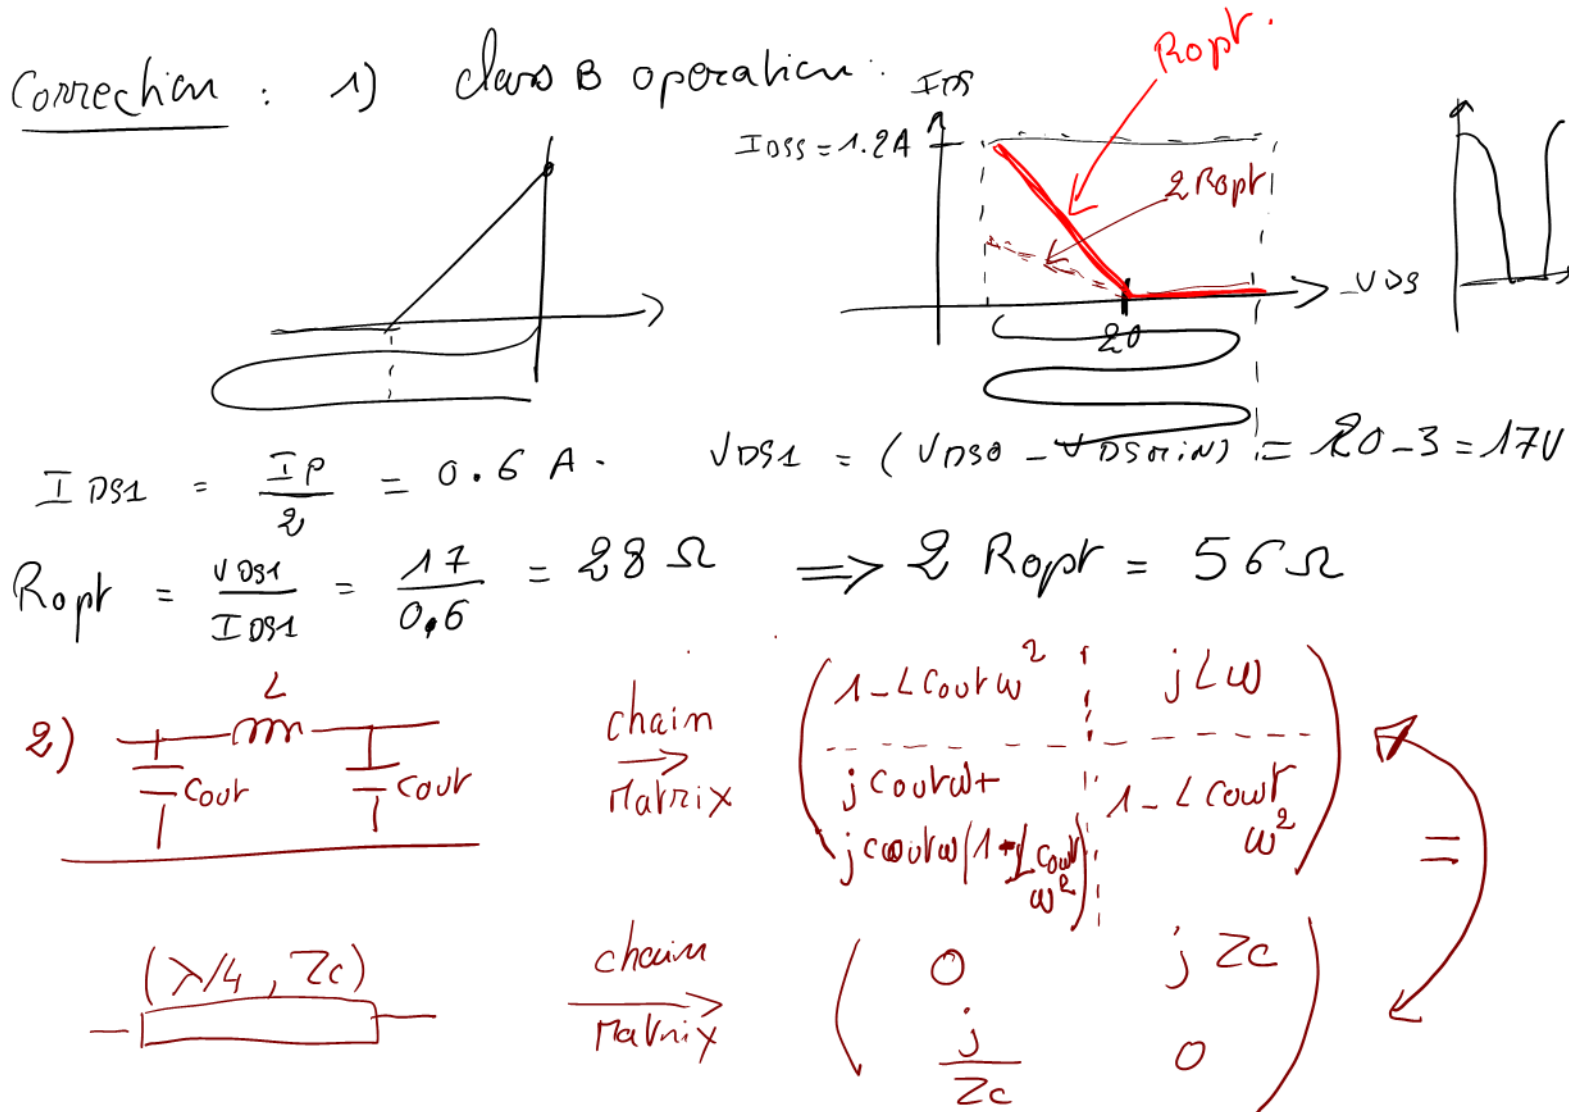 Correction : 1) class B operation :
IDS
Ropt.
IDSS = 1.2A
2 Ropt
VDS
20
IDS1 = IP/2 = 0.6 A. VDS1 = (VDS0 - VDSmin) = 20-3 = 17V
Ropt = VDS1/IDS1 = 17/0,6 = 28 Ω ⟹ 2 Ropt = 56 Ω
2)
L
Cout
Cout
chain
Matrix
1-LCoutω² jLω
jCoutω+
jCoutω(1-LCoutω²) 1-LCoutω²
=
(λ/4, Zc)
chain
Matrix
0 jZc
j/Zc 0